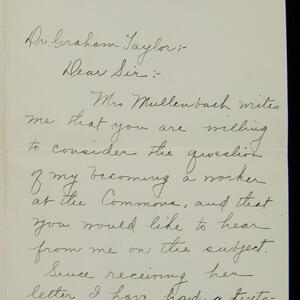 Dr. Graham Taylor:-
Dear Sir:-
Mrs Mullenbach writes
me that you are willing
to consider the question
of my becoming a worker
at the Commons, and that
you would like to hear
from me on the subject.
Since receiving her
letter I have had a